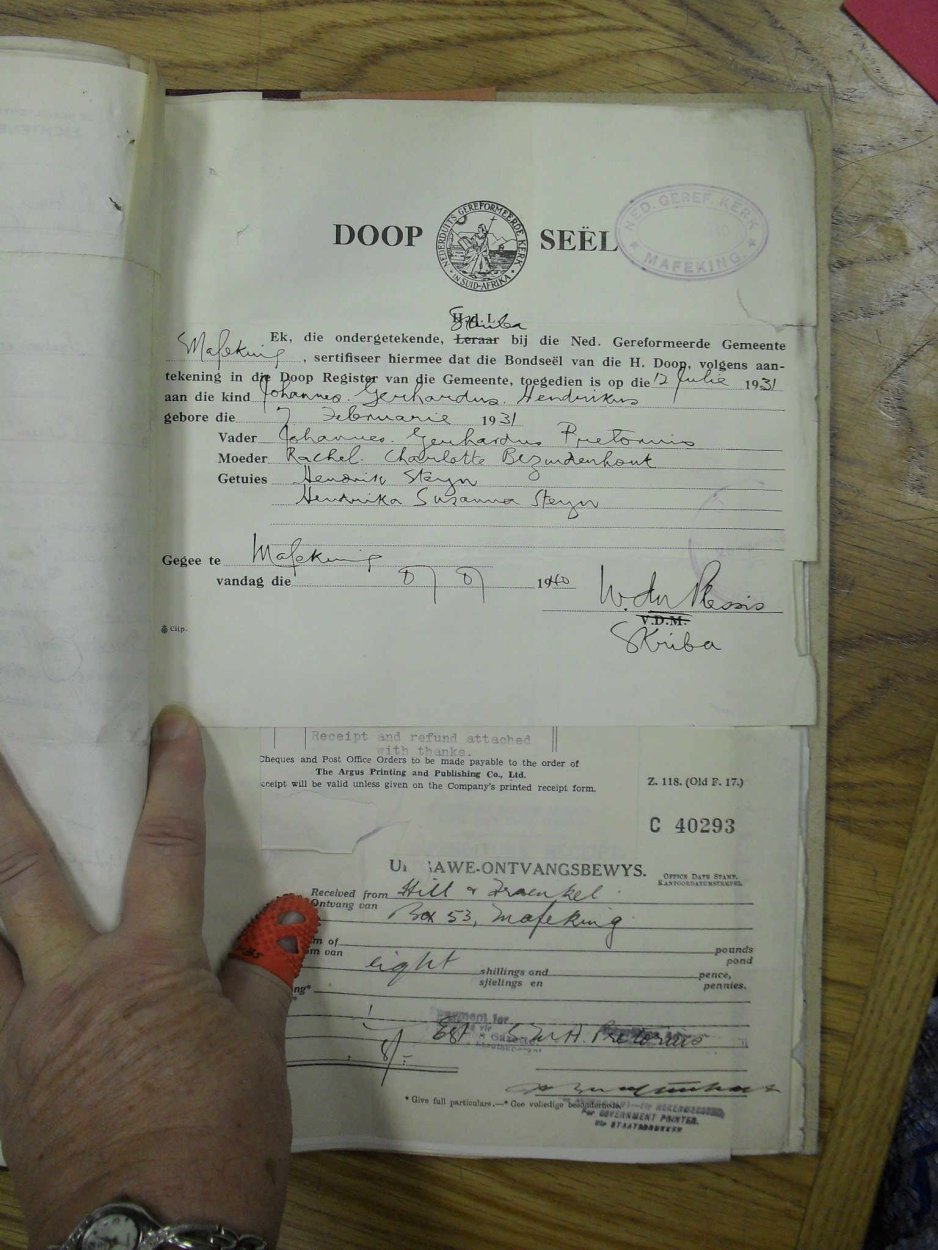 DOOP SEËL
NEDERDUITS GEREFORMEERDE KERK
IN SUID-AFRIKA
NED. GEREF. KERK
MAFEKING.
Skriba
Ek, die ondergetekende, Leraar bij die Ned. Gereformeerde Gemeente
Mafeking, sertifiseer hiermee dat die Bondseël van die H. Doop, volgens aan-
tekening in die Doop Register van die Gemeente, toegedien is op die 12 Julie 1931
aan die kind Johannes Gerhardus Hendrikus
gebore die 7 Februarie 1931
Vader Johannes Gerhardus Pretorius
Moeder Rachel Charlotte Bezuidenhout
Getuies Hendrik Steyn
Hendrika Susanna Steyn
Gegee te Mafeking
vandag die 8/8/1940
W. du Plessis
V.D.M.
Skriba
Citp.
Receipt and refund attached
with thanks.
Cheques and Post Office Orders to be made payable to the order of
The Argus Printing and Publishing Co., Ltd.
ceipt will be valid unless given on the Company's printed receipt form.
Z. 118. (Old F. 17.)
C 40293
AWE-ONTVANGSBEWYS.
OFFICE DATE STAMP.
KANTOORDATUMSTEMPEL.
Received from Hill & Fraenkel
Ontvang van Box 53, Mafeking
m of pounds
om van pond
eight shillings and pence,
sjielings en pennies.
ng*
Payment for
Gazette
Est Pretorius
8/-
* Give full particulars.—* Gee volledige besonderhede.
For GOVERNMENT PRINTER.
vir STAATSDRUKKER